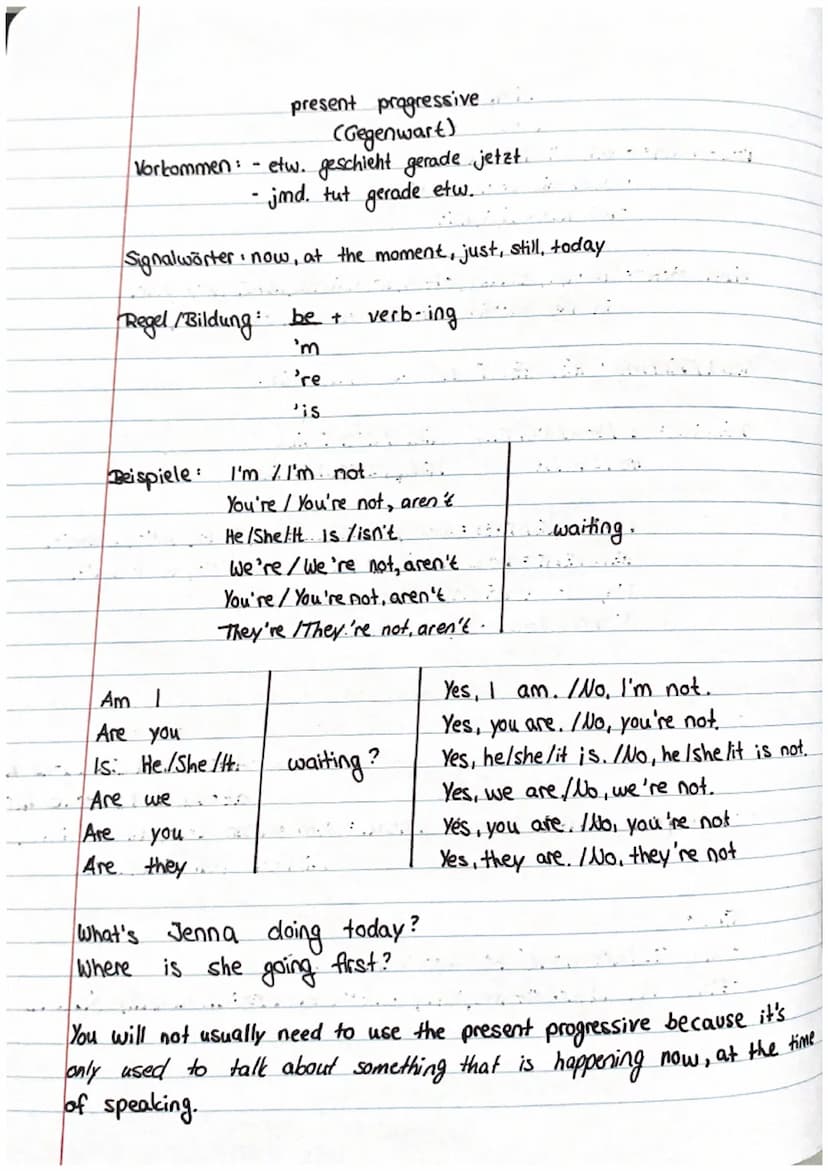 present progressive
(Gegenwart)
Vorkommen: - etw. geschieht gerade jetzt
- jmd. tut gerade etw.
Signalwörter: now, at the moment, just, still, today
Regel/Bildung: be + verb-ing
'm
're
'is
Beispiele: I'm / I'm not
You're / You're not, aren't
He/She/It is /isn't
We're / We're not, aren't
waiting.
You're / You're not, aren't
They're / They're not, aren't.
Am I
Are you
Is He/She/It
Are we
Are you
Are they
waiting?
Yes, I am. /No, I'm not.
Yes, you are. /No, you're not.
Yes, he/she/it is. /No, he/she/it is not.
Yes, we are/No, we're not.
Yes, you are. /No, you're not
Yes, they are. /No, they're not
What's Jenna doing today?
Where is she going first?
You will not usually need to use the present progressive because it's
only used to talk about something that is happening now, at the time
of speaking.